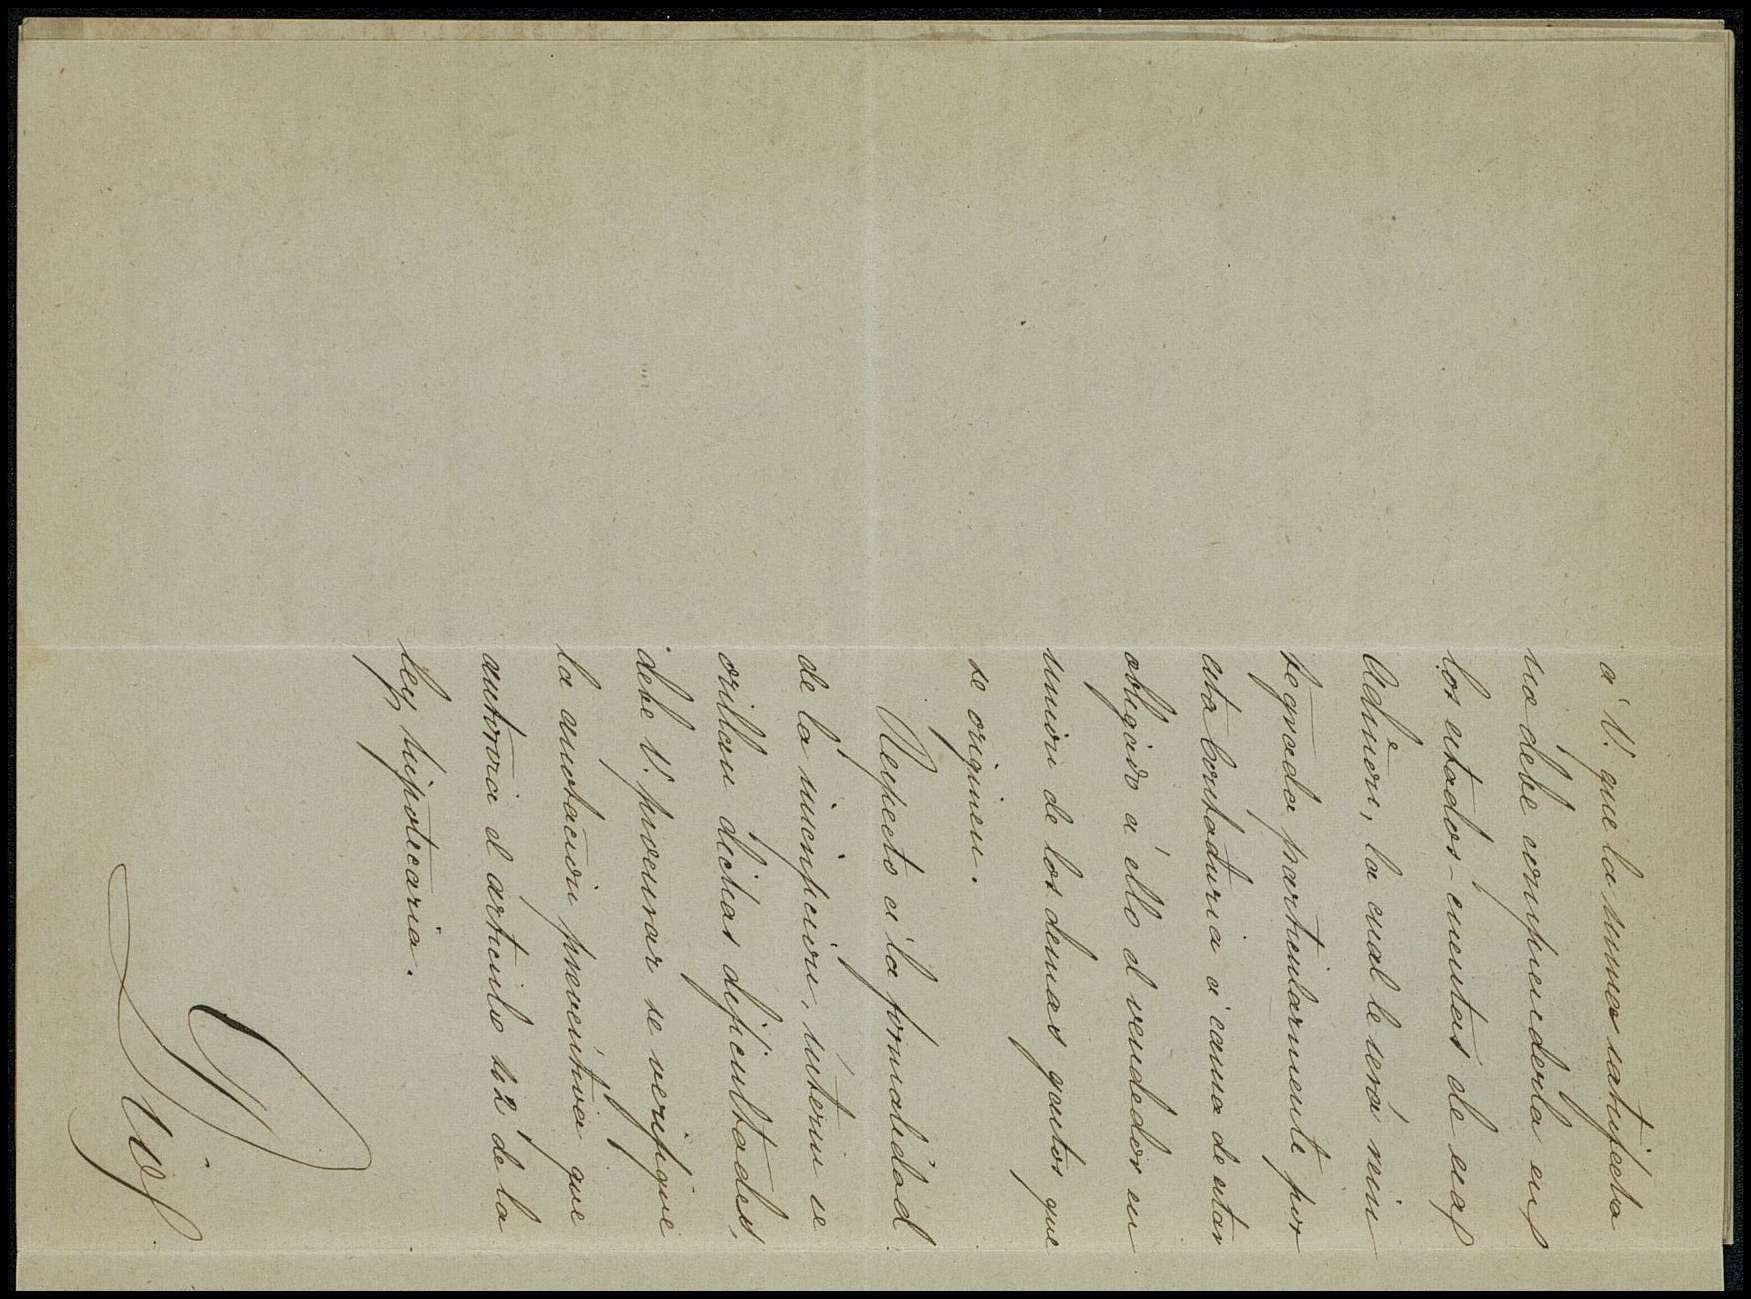 á V. que la suma satisfecha
no debe comprenderla en
los estados-cuentas de esa
Admon, la cual le será rein
tegrada particularmente por
esta Contaduria á causa de estar
obligado á ello el vendedor en
union de los demas gastos que
se originen.
Respecto á la formalidad
de la inscripcion, interin se
orillan dichas dificultades,
debe V. procurar se verifique
la anotacion preventiva que
autoriza el articulo 42 de la
ley hipotecaria.